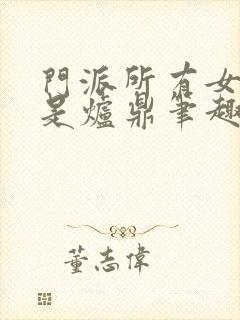 門派所有女
是爐鼎筆趣
董志偉